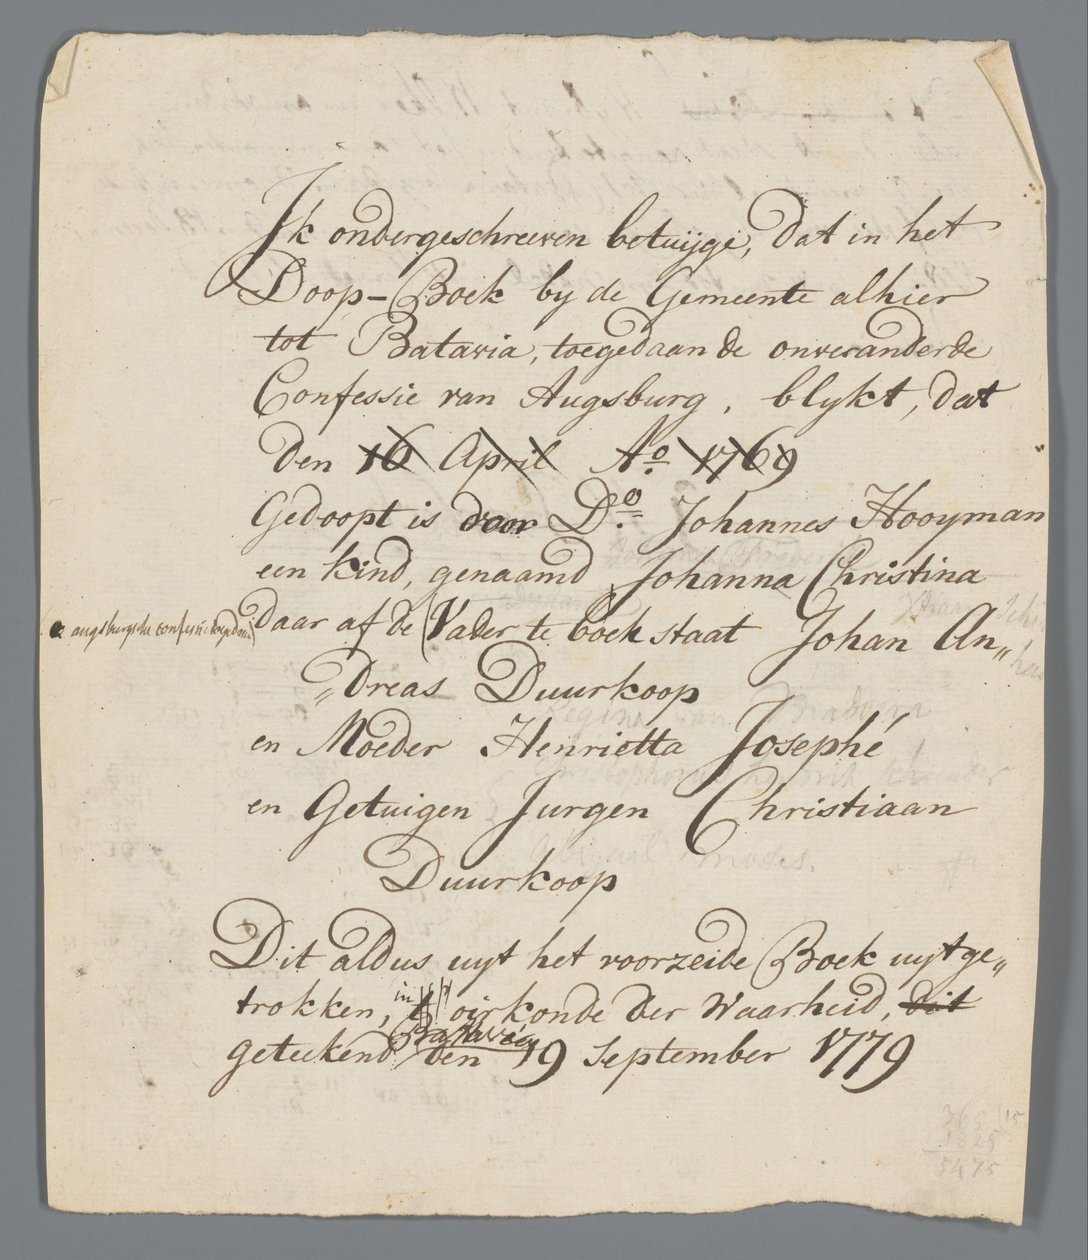 Ik ondergeschreeven betuijge, dat in het
Doop-Boek by de Gemeente alhier
tot Batavia, toegedaan de onveranderde
Confessie van Augsburg, blykt, dat
den 16 April Ao. 1769
Gedoopt is door Do. Johannes Hooyman
een kind, genaamd Johanna Christina
daar af de Vader te boek staat Johan An„
„dreas Duurkoop
en Moeder Henrietta Josephé
en Getuigen Jurgen Christiaan
Duurkoop
Dit aldus uyt het voorzeide Boek uytge„
trokken, in t oirkonde der Waarheid, dit
geteekend Batavia den 19 September 1779
Regina van
Abigail Moses.
365 15
1825
5475